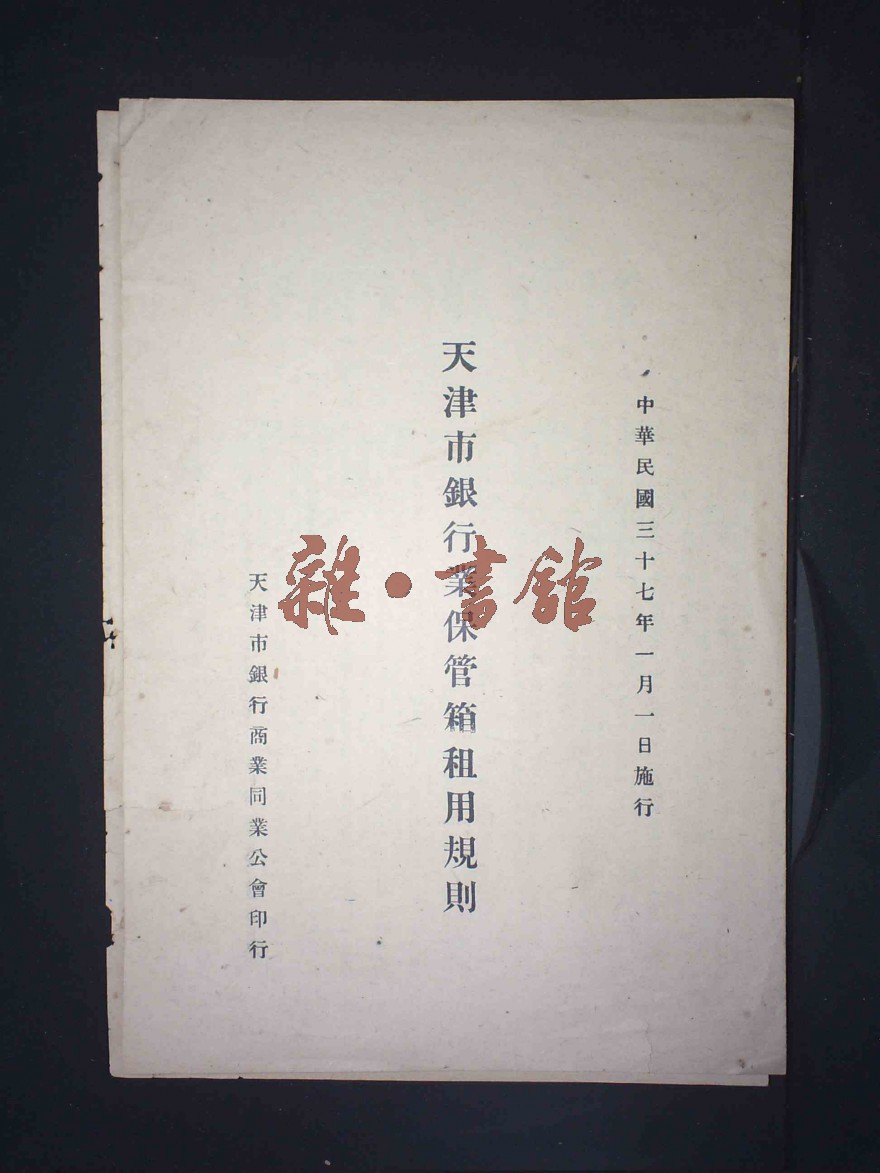 中華民國三十七年一月一日施行
天津市銀行業保管箱租用規則
天津市銀行商業同業公會印行
雜·書館